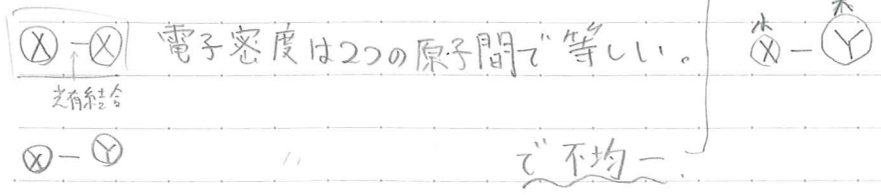 Ⓧ－Ⓧ 電子密度は2つの原子間で等しい。
共有結合
Ⓧ－Ⓨ 〃 で不均一.
小 大
Ⓧ－Ⓨ